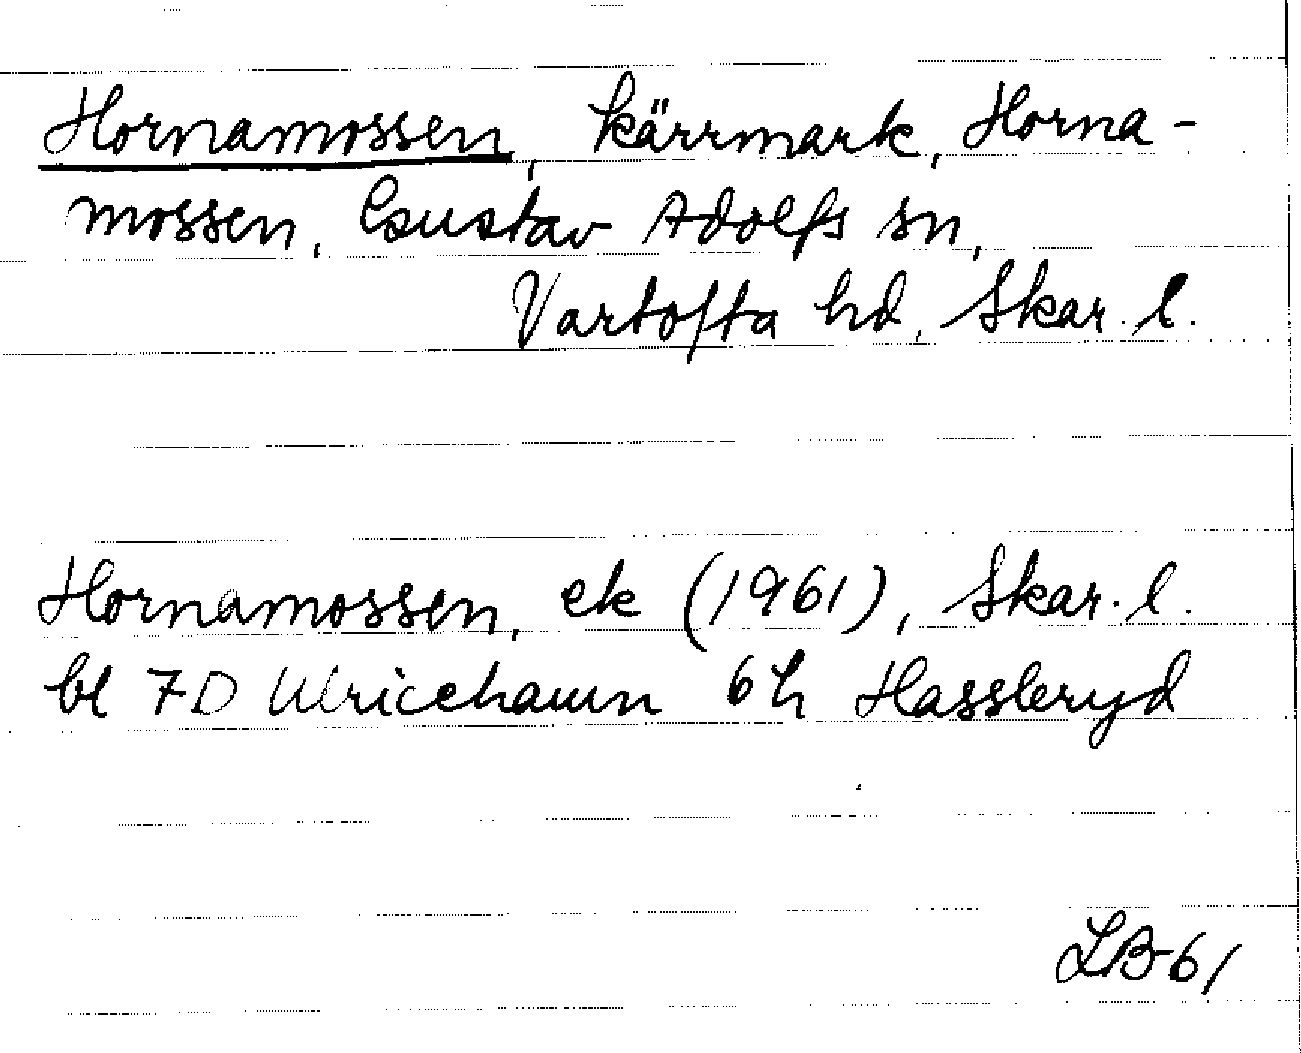 Hornamossen, kärrmark, Horna-
mossen, Gustav Adolfs sn,
Vartofta hd, Skar. l.
Hornamossen, ek (1961), Skar. l.
bl 7D Ulricehamn 6h Hassleryd
LB-61